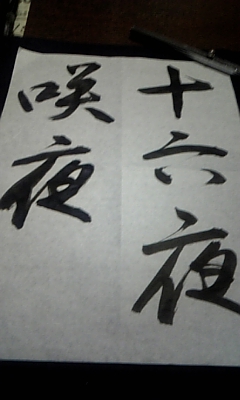 十六夜
咲夜